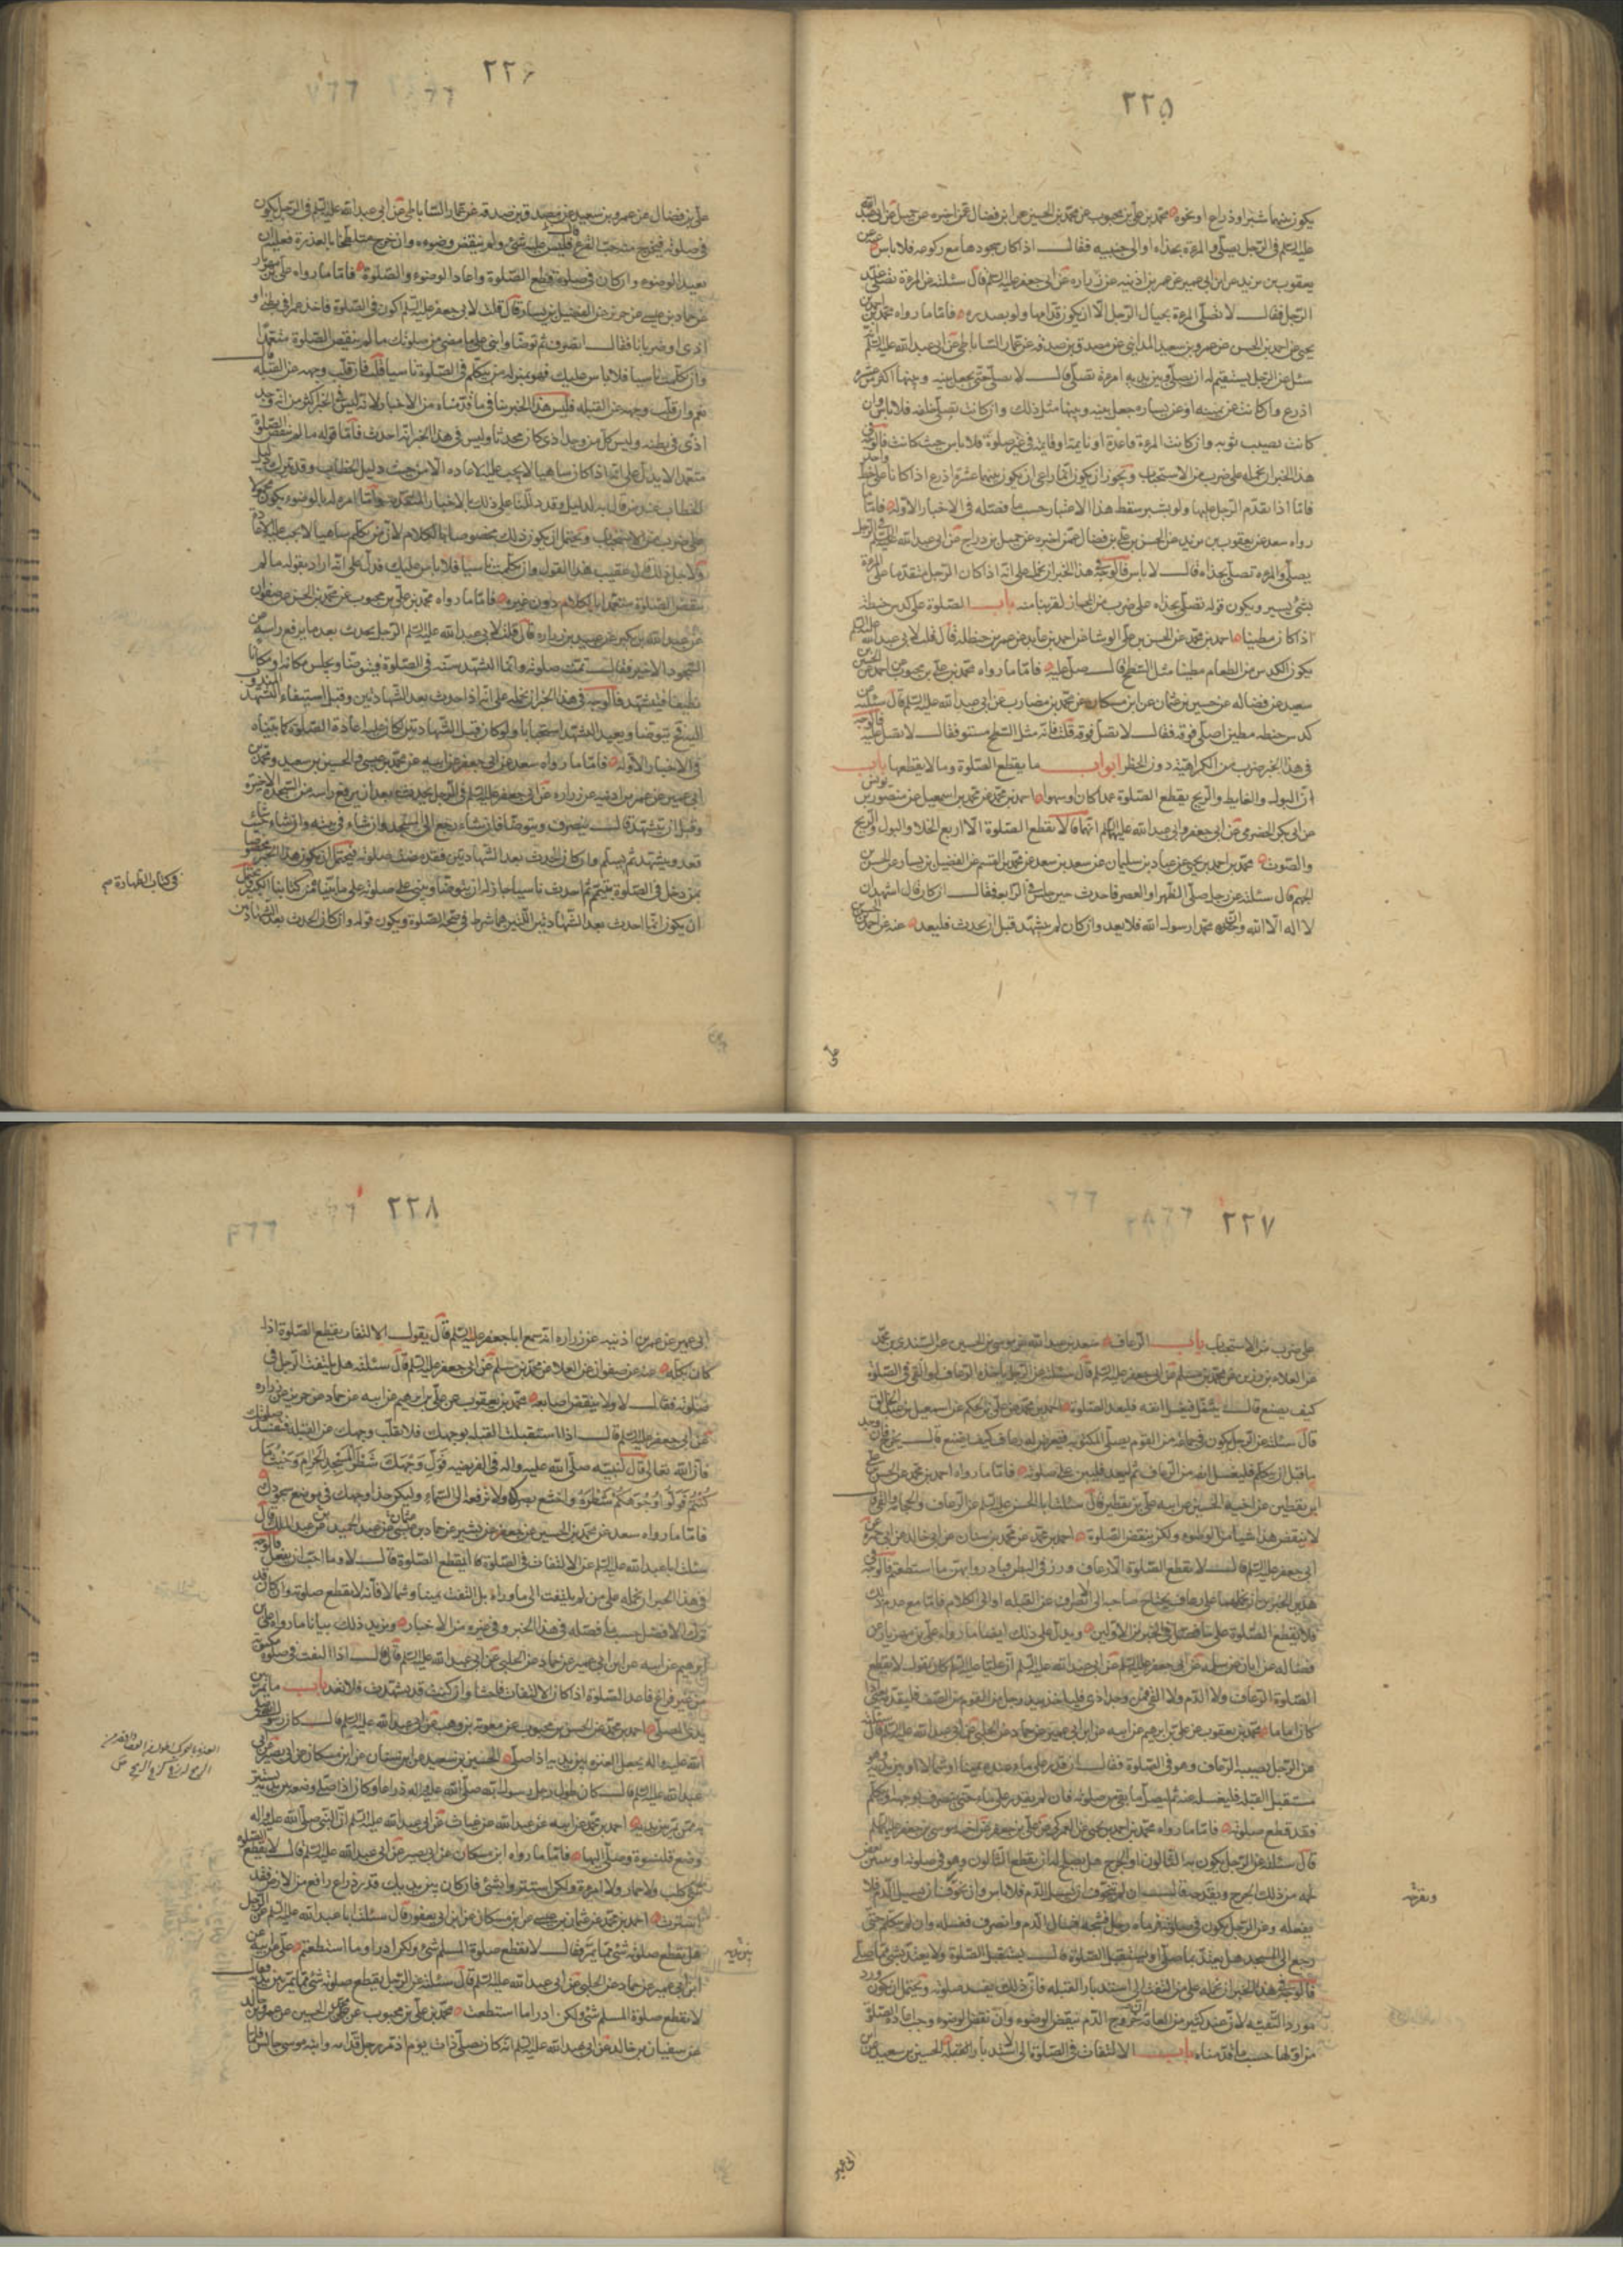 ٢٢٥
يكون بينهما شبرا و ذراع او نحوه محمد بن علي بن محبوب عن محمد بن الحسين عن ابن فضال عمن اخبره عن جميل عن ابي عبد الله
عليه السلم في الرجل يصلي و المرءة بحذاه او الى جنبيه فقال اذا كان سجودها مع ركوعه فلا باس عنه عن
يعقوب بن يزيد عن ابن ابي عمير عن عمر بن اذينه عن زراره عن ابي جعفر عليه السلم قال سئلته عن المرءة تصلي عند
الرجل فقال لا تصلي المرءة بحيال الرجل الا ان يكون قدامها ولو بصدره فاما ما رواه محمد بن احمد بن
يحيى عن احمد بن الحسن عن عمرو بن سعيد المدايني عن مصدق بن صدقه عن عمار الساباطي عن ابي عبد الله عليه السلم انه
سئل عن الرجل يستقيم له ان يصلي و بين يديه امرءة تصلي قال لا يصلي حتى يجعل بينه و بينها اكثر من عشره
اذرع و ان كانت عن يمينه او عن يساره جعل بينه و بينها مثل ذلك و ان كانت تصلي خلفه فلا باس و ان
كانت تصيب ثوبه و ان كانت المرءة قاعدة او نايمة او قايمة في غير صلوة فلا باس حيث كانت فالوجه في
هذا الخبر ان نحمله على ضرب من الاستحباب و يجوز ان يكون انما راعى ان يكون بينهما عشرة اذرع اذا كانا على خط واحد
فاما اذا تقدم الرجل عليها ولو بشبر سقط هذا الاعتبار حسب ما فصله في الاخبار الاوله فاما ما
رواه سعد عن يعقوب بن يزيد عن الحسن بن علي بن فضال عمن اخبره عن جميل بن دراج عن ابي عبد الله عليه السلم في الرجل
يصلي و المرءة تصلي بحذاه قال لا باس فالوجه في هذا الخبر ان نحمل على انه اذا كان الرجل متقدما على المرءة
بشئ يسير و يكون قوله تصلي بحذاه على ضرب من المجاز لقربها منه باب الصلوة على كدس حنطة
اذا كان مطينا احمد بن محمد عن الحسن بن علي الوشا عن احمد بن عايذ عن عمر بن حنظله قال قلت لابي عبد الله عليه السلم
يكون الكدس من الطعام مطينا مثل السطح قال صل عليه فاما ما رواه محمد بن علي بن محبوب عن احمد عن الحسين بن
سعيد عن فضاله عن حسين بن عثمان عن ابن مسكان عن محمد بن مضارب عن ابي عبد الله عليه السلم قال سئلته عن
كدس حنطه مطين اصلي فوقه فقال لا تصل فوقه قلت فانه مثل السطح مستو فقال لا تصل عليه فالوجه
في هذا الخبر ضرب من الكراهية دون الحظر ابواب ما يقطع الصلوة وما لا يقطعها باب
ان البول و الغايط و الريح يقطع الصلوة عمدا كان او سهوا احمد بن محمد عن محمد بن اسمعيل عن منصور بن يونس
عن ابي بكر الحضرمي عن ابي جعفر و ابي عبد الله عليهما السلم انهما قالا لا يقطع الصلوة الا اربع الخلا و البول و الريح
و الصوت محمد بن احمد بن يحيى عن عباد بن سليمان عن سعد بن سعد عن محمد بن القسم عن الفضيل بن يسار عن الحسن بن
الجهم قال سئلته عن رجل صلى الظهر او العصر فاحدث حين جلس في الرابعه فقال ان كان قال اشهد ان
لا اله الا الله و ان محمدا رسول الله فلا يعد و ان كان لم يتشهد قبل ان يحدث فليعد عنه عن احمد بن الحسن بن
علي
٢٢٦
علي بن فضال عن عمرو بن سعيد عن مصدق بن صدقه عن عمار الساباطي عن ابي عبد الله عليه السلم في الرجل يكون
في صلوته فيخرج منه حب القرع فليس عليه شئ ولم ينقض وضوءه و ان خرج متلطخا بالعذرة فعليه ان
يعيد الوضوء و ان كان في صلوته قطع الصلوة و اعاد الوضوء و الصلوة فاما ما رواه علي بن مهزيار
عن حماد بن عيسى عن حريز عن الفضيل بن يسار قال قلت لابي جعفر عليه السلم اكون في الصلوة فاجد غمزا في بطني او
اذى او ضربانا فقال انصرف ثم توضا و ابن على ما مضى من صلوتك ما لم تنقض الصلوة متعمدا
و ان تكلمت ناسيا فلا باس عليك فهو بمنزلة من تكلم في الصلوة ناسيا قلت فان قلب وجهه عن القبله قال
نعم و ان قلب وجهه عن القبله فليس هذا الخبر ينافي ما قدمناه من الاخبار لانه ليس في الخبر اكثر من انه وجد
اذى في بطنه و ليس كل من وجد اذى كان محدثا و ليس في هذا الخبر انه احدث فاما قوله ما لم تنقض الصلوة
متعمدا لا يدل على انه اذا كان ساهيا لا يجب عليه الاعاده الا من حيث دليل الخطاب و قد ترك دليل
الخطاب عند من قال به لدليل و قد دللنا على ذلك بالاخبار المتقدمه و اما امره له بالوضوء يكون محمولا
على ضرب من الاستحباب و يحتمل ان يكون ذلك مخصوصا بالكلام لان من تكلم ساهيا لا يجب عليه الاعادة
و لاجل ذلك قال عقيب هذا القول و ان تكلمت ناسيا فلا باس عليك فدل على انه اراد بقوله ما لم
تنقض الصلوة متعمدا بالكلام دون غيره فاما ما رواه محمد بن علي بن محبوب عن محمد بن الحسن عن صفوان
عن عبد الله بن بكير عن عبيد بن زراره قال قلت لابي عبد الله عليه السلم الرجل يحدث بعد ما يرفع راسه من
السجود الاخير فقال تمت صلوته و انما التشهد سنه في الصلوة فيتوضا و يجلس مكانه او مكانا
نظيفا فيتشهد فالوجه في هذا الخبر ان نحمله على انه اذا احدث بعد الشهادتين و قبل استيفاء التشهد المندوب
اليه يتوضا و يعيد التشهد استحبابا ولو كان قبل الشهادتين كان عليه اعادة الصلوة كما بيناه
في الاخبار الاوله فاما ما رواه سعد عن ابي جعفر عن ابيه عن محمد بن عيسى و الحسين بن سعيد و محمد بن
ابي عمير عن عمر بن اذينه عن زراره عن ابي جعفر عليه السلم في الرجل يحدث بعد ان يرفع راسه من السجدة الاخيرة
و قبل ان يتشهد قال ينصرف و يتوضا فان شاء رجع الى المسجد و ان شاء في بيته و ان شاء حيث
قعد و يتشهد ثم يسلم و ان كان الحدث بعد الشهادتين فقد مضت صلوته فيحتمل ان يكون هذا الخبر مخصوصا
بمن دخل في الصلوة بتيمم ثم احدث ناسيا جاز له ان يتوضا و يبني على صلوته على ما بيناه في كتابنا الكبير و يحتمل
ان يكون انما احدث بعد الشهادتين اللتين هما شرط في صحة الصلوة و يكون قوله و ان كان الحدث بعد الشهادتين
في كتاب الطهارة م
٢٢٧
على ضرب من الاستحباب باب الرعاف سعد بن عبد الله عن موسى بن الحسين عن السندي بن محمد
عن العلاء بن رزين عن محمد بن مسلم عن ابي جعفر عليه السلم قال سئلته عن الرجل ياخذه الرعاف او القي في الصلوة
كيف يصنع قال ينفتل فيغسل انفه فليعد الصلوة احمد بن محمد عن علي بن الحكم عن اسمعيل بن عبد الخالق
قال سئلته عن الرجل يكون في جماعه من القوم يصلي المكتوبه فيعرض له رعاف كيف يصنع قال يخرج فان وجد
ما قبل ان يتكلم فليغسل انفه من الرعاف ثم ليعد فليبن على صلوته فاما ما رواه احمد بن محمد عن الحسن بن علي
ابن يقطين عن اخيه الحسين عن ابيه علي بن يقطين قال سئلت ابا الحسن عليه السلم عن الرعاف و الحجامه و القي قال
لا ينقض هذا شيئا من الوضوء و لكن ينقض الصلوة احمد بن محمد عن محمد بن سنان عن ابي خالد عن ابي حمزه عن
ابي جعفر عليه السلم قال لا يقطع الصلوة الا رعاف و رز في البطن فبادروا بهن ما استطعتم فالوجه في
هذين الخبرين ان نحملهما على رعاف يحتاج صاحبه الى الانصراف عن القبله او الى الكلام فاما مع عدم ذلك
فلا يقطع الصلوة على ما فصل في الخبرين الاولين و يدل على ذلك ايضا ما رواه علي بن مهزيار عن
فضاله عن ابان عن سلمه عن ابي جعفر عليه السلم عن ابي عبد الله عليه السلم ان عليا عليه السلم كان يقول لا يقطع
الصلوة الرعاف ولا الدم ولا القي فمن وجد اذى فلياخذ بيد رجل من القوم من الصف فليقدمه يعني اذا
كان اماما محمد بن يعقوب عن علي بن ابرهيم عن ابيه عن ابن ابي عمير عن حماد عن الحلبي عن ابي عبد الله عليه السلم قال سئلته
عن الرجل يصيبه الرعاف وهو في الصلوة فقال ان قدر على ماء عنده يمينا او شمالا او بين يديه وهو
مستقبل القبله فليغسله عنه ثم ليصل ما بقي من صلوته فان لم يقدر على ماء حتى ينصرف بوجهه او يتكلم
فقد قطع صلوته فاما ما رواه محمد بن احمد بن يحيى عن العمركي عن علي بن جعفر عن اخيه موسى بن جعفر عليهما السلم
قال سئلته عن الرجل يكون به الثالول او الجرح هل يصلح له ان يقطع الثالول وهو في صلوته او ينتف بعض
لحمه من ذلك الجرح و يطرحه قال ان لم يتخوف ان يسيل الدم فلا باس و ان تخوف ان يسيل الدم فلا
يفعله و عن الرجل يكون في صلوته فرماه رجل فشجه فسال الدم و انصرف فغسله و ان لم يتكلم حتى
رجع الى المسجد هل يعتد بما صلى او يستقبل الصلوة قال يستقبل الصلوة ولا يعتد بشئ مما صلى
فالوجه في هذا الخبر ان نحمله على من التفت الى استدبار القبله فان ذلك يفسد صلوته و يحتمل ان يكون ورد
مورد التقيه لان عند كثير من العامة خروج الدم ينقض الوضوء و ان نقض الوضوء وجب اعادة الصلوة
من اولها حسب ما قدمناه باب الالتفات في الصلوة الى الاستدبار القبله الحسين بن سعيد عن ابن
ابي عمير
٢٢٨
ابي عمير عن عمر بن اذينه عن زراره انه سمع ابا جعفر عليه السلم قال يقول الالتفات يقطع الصلوة اذا
كان بكله عنه عن صفوان عن العلا عن محمد بن مسلم عن ابي جعفر عليه السلم قال سئلته هل يلتفت الرجل في
صلوته فقال لا ولا ينقض اصابعه محمد بن يعقوب عن علي بن ابرهيم عن ابيه عن حماد عن حريز عن زراره
عن ابي جعفر عليه السلم قال اذا استقبلت القبله بوجهك فلا تقلب وجهك عن القبله فتفسد صلوتك
فان الله تعالى قال لنبيه صلى الله عليه واله في الفريضه فَوَلِّ وَجْهَكَ شَطْرَ الْمَسْجِدِ الْحَرَامِ وَحَيْثُ مَا
كُنْتُمْ فَوَلُّوا وُجُوهَكُمْ شَطْرَهُ و اخشع ببصرك ولا ترفعه الى السماء و ليكن حذا وجهك في موضع سجودك
فاما ما رواه سعد عن محمد بن الحسين عن جعفر بن بشير عن حماد بن عثمان عن عبد الحميد عن عبد الملك قال
سئلت ابا عبد الله عليه السلم عن الالتفات في الصلوة ايقطع الصلوة قال لا وما احب ان يفعل فالوجه
في هذا الخبر ان نحمله على من لم يلتفت الى ما وراه بل التفت يمينا و شمالا فانه لا يقطع صلوته و ان كان قد
ترك الافضل حسب ما فصله في هذا الخبر و في غيره من الاخبار و يزيد ذلك بيانا ما رواه علي بن
ابرهيم عن ابيه عن ابن ابي عمير عن حماد عن الحلبي عن ابي عبد الله عليه السلم قال قال اذا التفت في صلوة مكتوبة
من غير فراغ فاعد الصلوة اذا كان الالتفات فاحشا و ان كنت قد تشهدت فلا تعد باب ما يمر بين
يدي المصلي احمد بن محمد عن الحسن بن محبوب عن معوية بن وهب عن ابي عبد الله عليه السلم قال كان رسول الله صلى
الله عليه واله يجعل العنزه بين يديه اذا صلى الحسين بن سعيد عن ابن سنان عن ابن مسكان عن ابي بصير عن ابي
عبد الله عليه السلم قال كان طول رحل رسول الله صلى الله عليه واله ذراعا و كان اذا صلى وضعه بين يديه يستتر
به ممن يمر بين يديه احمد بن محمد عن ابيه عن عبد الله عن غياث عن ابي عبد الله عليه السلم ان النبي صلى الله عليه واله
وضع قلنسوة و صلى اليها فاما ما رواه ابن مسكان عن ابي بصير عن ابي عبد الله عليه السلم قال لا يقطع الصلوة
شئ كلب ولا حمار ولا امرءة و لكن استتروا بشئ فان كان بين يديك قدر ذراع رافع من الارض فقد
استترت احمد بن محمد عن عثمان بن عيسى عن ابن مسكان عن ابن ابي يعفور قال سئلت ابا عبد الله عليه السلم عن الرجل
هل يقطع صلوته شئ مما يمر فقال لا يقطع صلوة المسلم شئ و لكن ادراوا ما استطعتم علي عن ابيه عن
ابن ابي عمير عن حماد عن الحلبي عن ابي عبد الله عليه السلم قال سئلته عن الرجل يقطع صلوته شئ مما يمر بين يديه فقال
لا يقطع صلوة المسلم شئ و لكن ادرا ما استطعت محمد بن علي بن محبوب عن محمد بن الحسين عن عمرو بن خالد
عن سفيان بن خالد عن ابي عبد الله عليه السلم انه كان يصلي ذات يوم اذ مر رجل قدامه و ابنه موسى جالس فلما
بين يديه